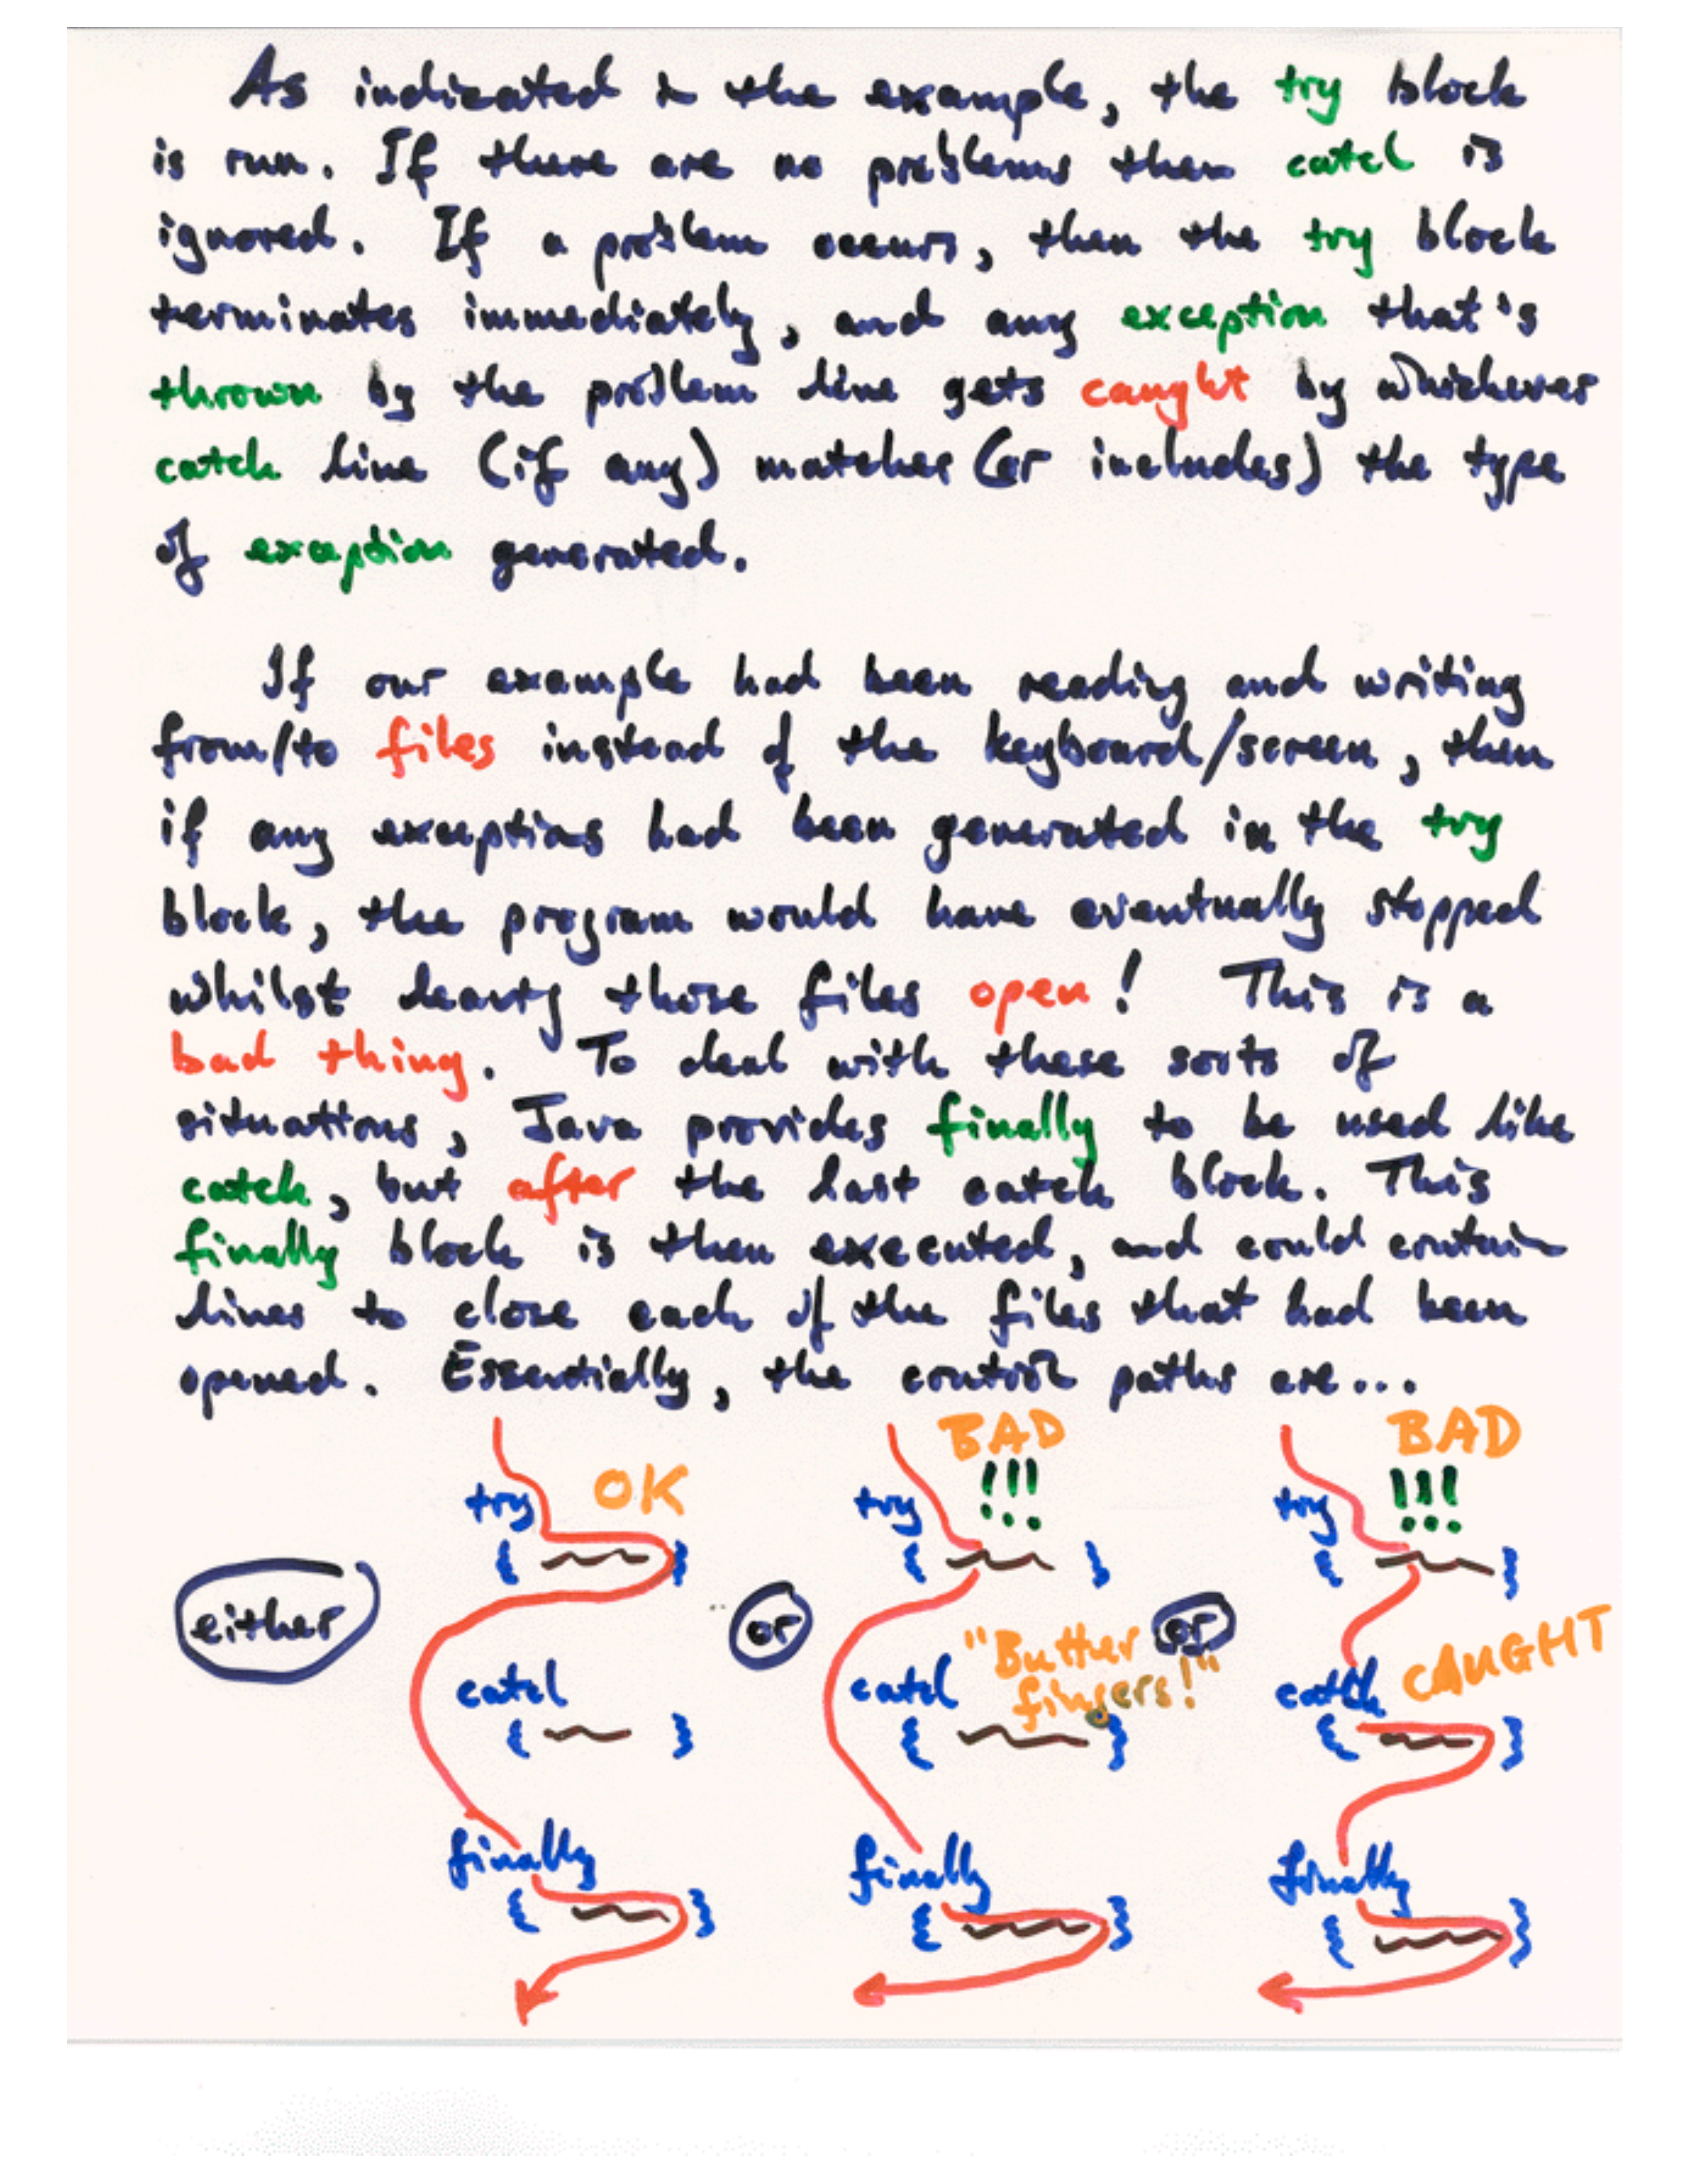 As indicated in the example, the try block
is run. If there are no problems then catch is
ignored. If a problem occurs, then the try block
terminates immediately, and any exception that's
thrown by the problem line gets caught by whichever
catch line (if any) matches (or includes) the type
of exception generated.
If our example had been reading and writing
from/to files instead of the keyboard/screen, then
if any exceptions had been generated in the try
block, the program would have eventually stopped
whilst leaving those files open! This is a
bad thing. To deal with these sorts of
situations, Java provides finally to be used like
catch, but after the last catch block. This
finally block is then executed, and could contain
lines to close each of the files that had been
opened. Essentially, the control paths are...
either
try OK
{ }
catch
{ }
finally
{ }
or
BAD
!!!
try
{ }
catch "Butter
fingers!"
{ }
finally
{ }
or
BAD
!!!
try
{ }
catch CAUGHT
{ }
finally
{ }